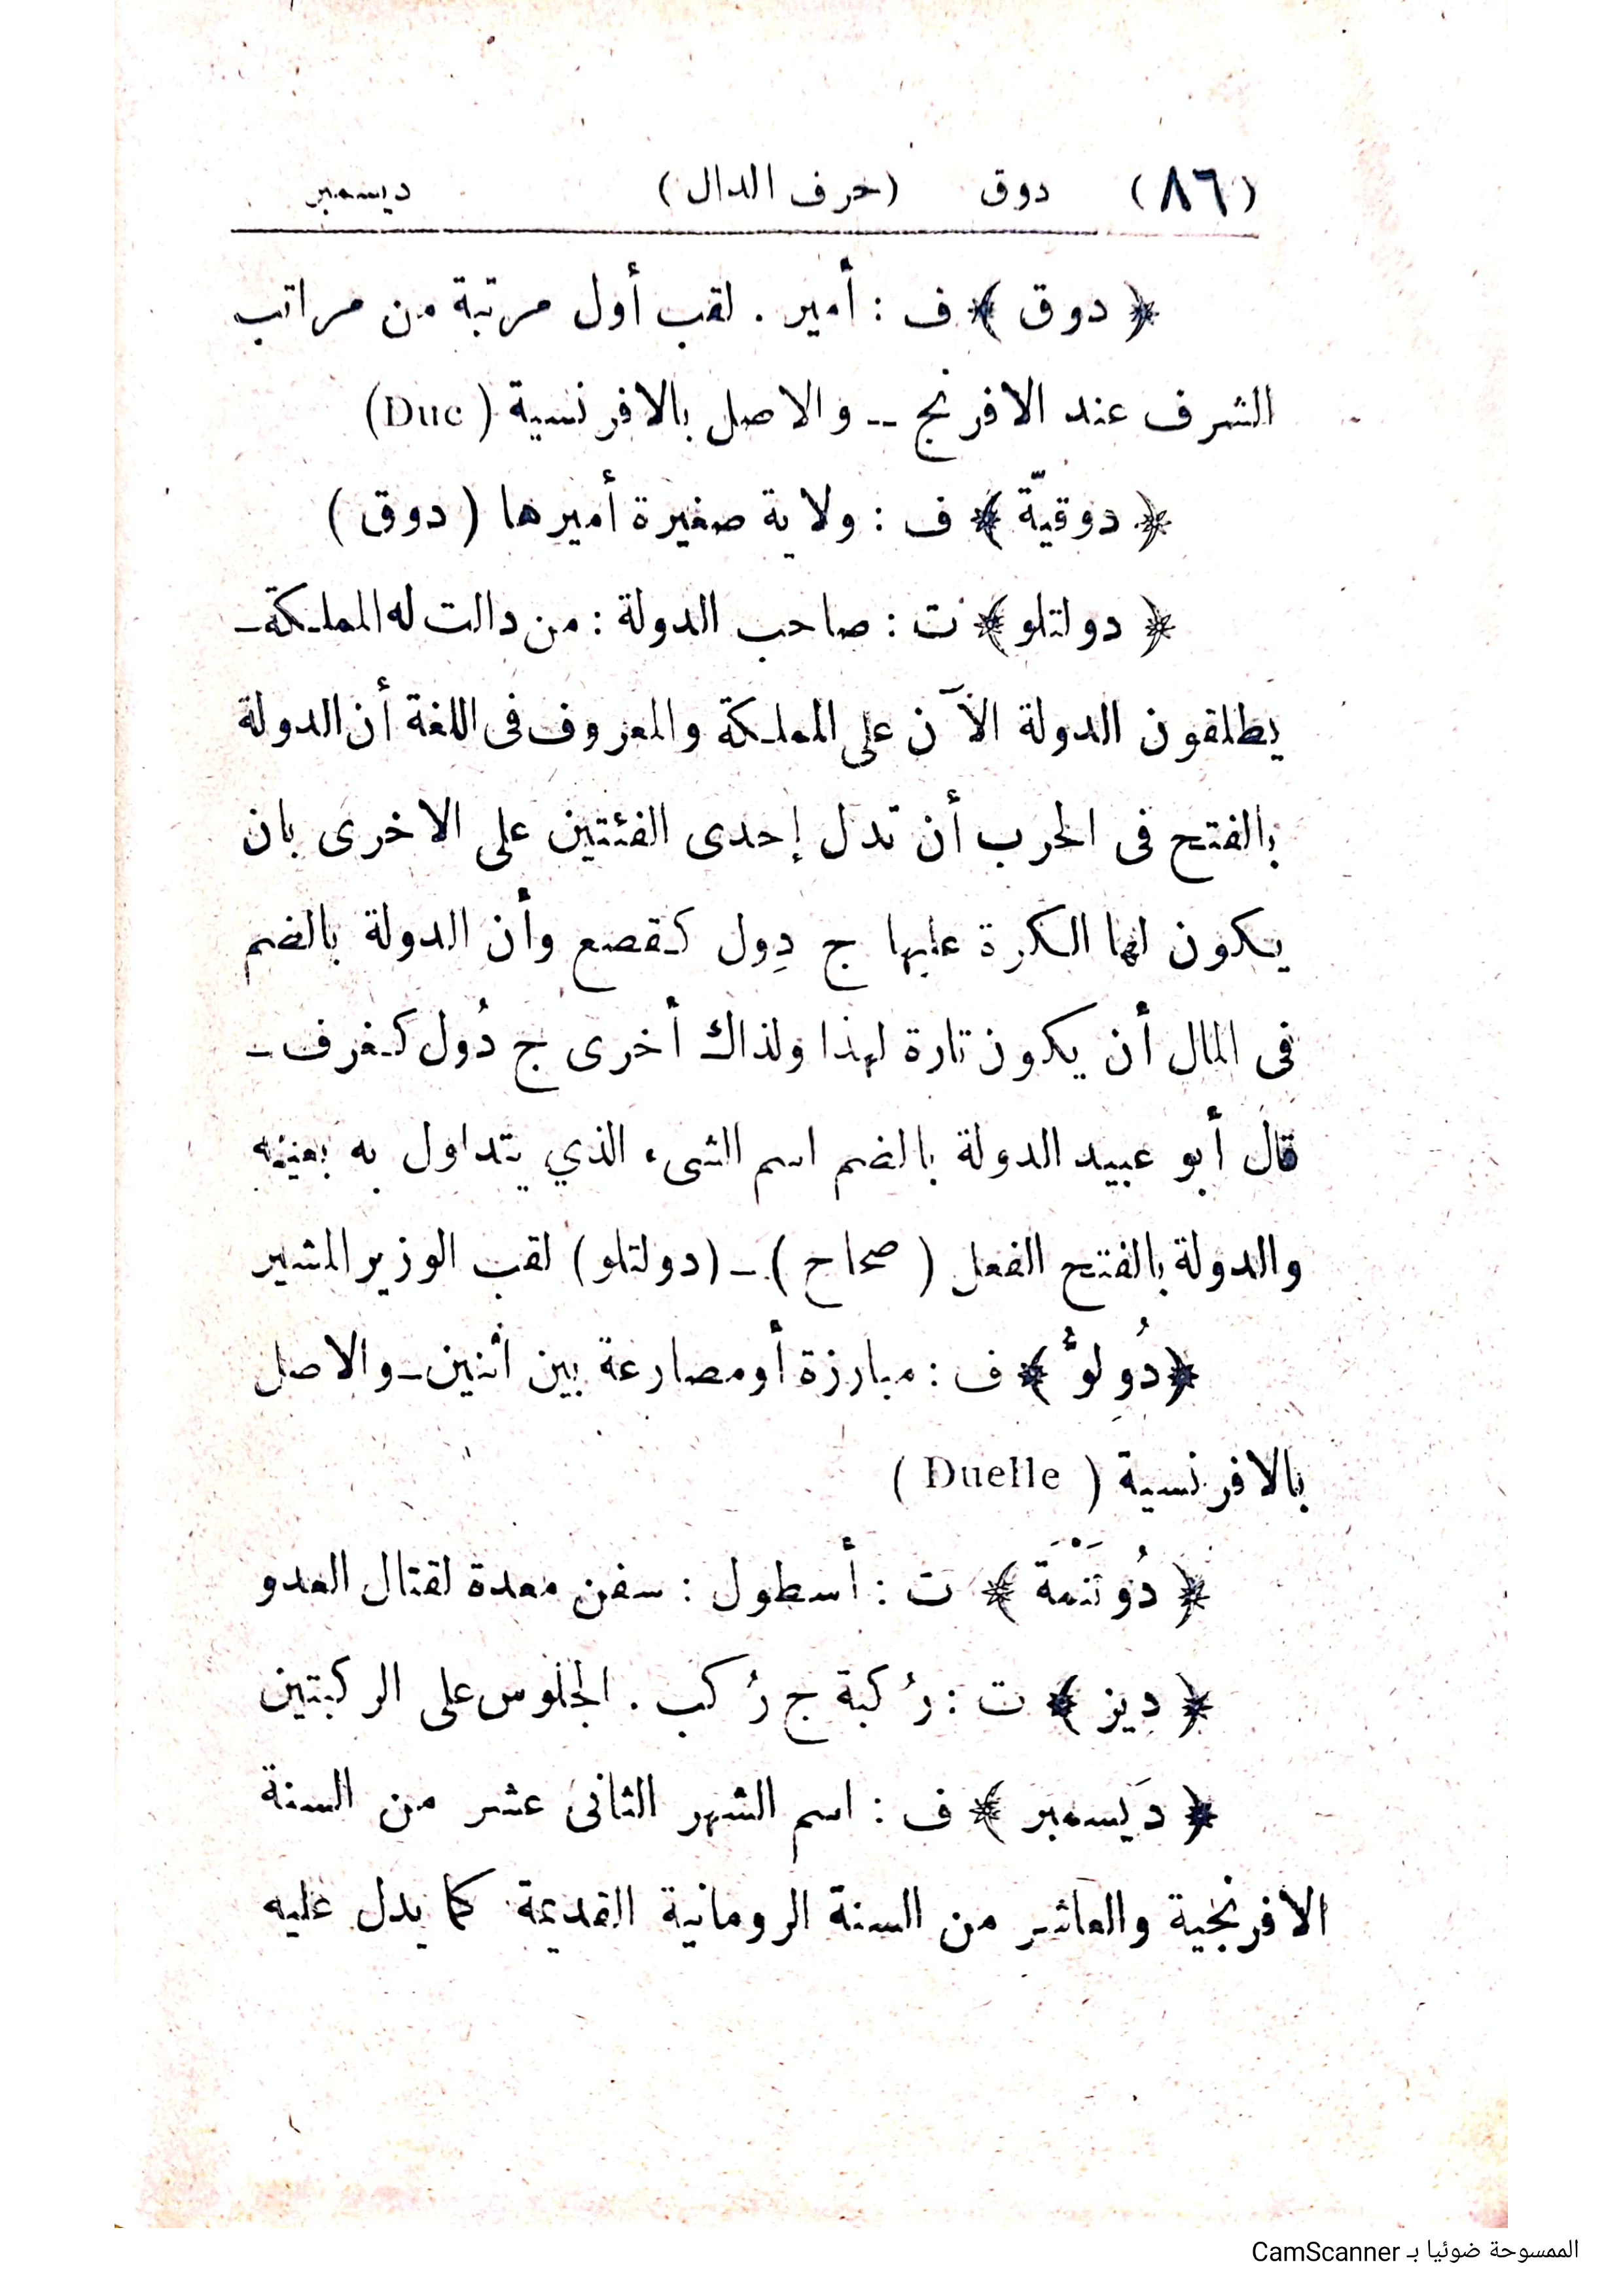 (٨٦) دوق (حرف الدال) ديسمبر
﴿ دوق ﴾ ف : أمير . لقب أول مرتبة من مراتب
الشرف عند الافرنج -- والاصل بالافرنسية ( Duc)
﴿ دوقيّة ﴾ ف : ولاية صغيرة أميرها ( دوق )
﴿ دولتلو ﴾ ت : صاحب الدولة : من دالت له المملكة –
يطلقون الدولة الآن على المملكة والمعروف فى اللغة أن الدولة
بالفتح فى الحرب أن تدل إحدى الفئتين على الاخرى بان
يكون لها الكرة عليها ج دِول كقصع وأن الدولة بالضم
فى المال أن يكون تارة لهذا ولذاك أخرى ج دُول كغرف –
قال أبو عبيد الدولة بالضم اسم الشىء الذي يتداول به بعينه
والدولة بالفتح الفعل ( صحاح ) – (دولتلو) لقب الوزير المشير
﴿ دُولوُّ ﴾ ف : مبارزة أو مصارعة بين اثنين – والاصل
بالافرنسية ( Duelle )
﴿ دُونَنْمَة ﴾ ت : أسطول : سفن معدة لقتال العدو
﴿ ديز ﴾ ت : رُكبة ج رُكب . الجلوس على الركبتين
﴿ دَيسمبر ﴾ ف : اسم الشهر الثانى عشر من السنة
الافرنجية والعاشر من السنة الرومانية القديمة كما يدل عليه
الممسوحة ضوئيا بـ CamScanner